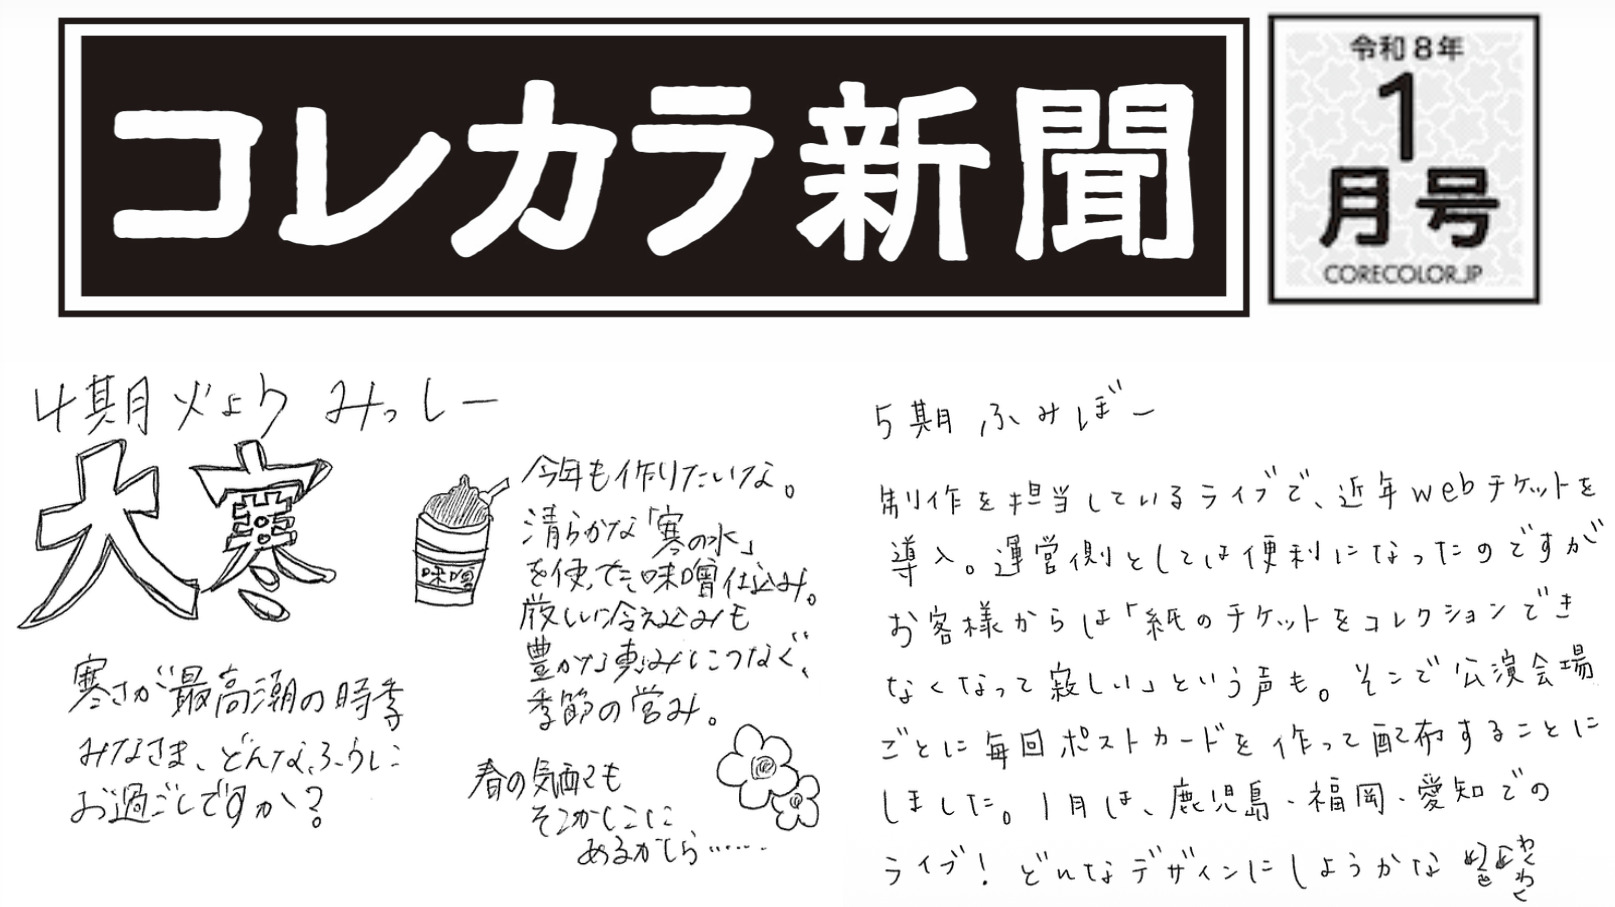 コレカラ新聞
令和8年
1
月号
CORECOLOR.JP
4期火より みっしー
大寒
寒さが最高潮の時季
みなさま、どんなふうに
お過ごしですか?
味噌
今年も作りたいな。
清らかな「寒の水」
を使った味噌仕込み。
厳しい冷え込みも
豊かな恵みにつなぐ、
季節の営み。
春の気配も
そこかしこに
あるかしら……
5期 ふみぼー
制作を担当しているライブで、近年webチケットを
導入。運営側としては便利になったのですが
お客様からは「紙のチケットをコレクションでき
なくなって寂しい」という声も。そこで公演会場
ごとに毎回ポストカードを作って配布することに
しました。1月は、鹿児島、福岡、愛知での
ライブ! どんなデザインにしようかな
わくわく